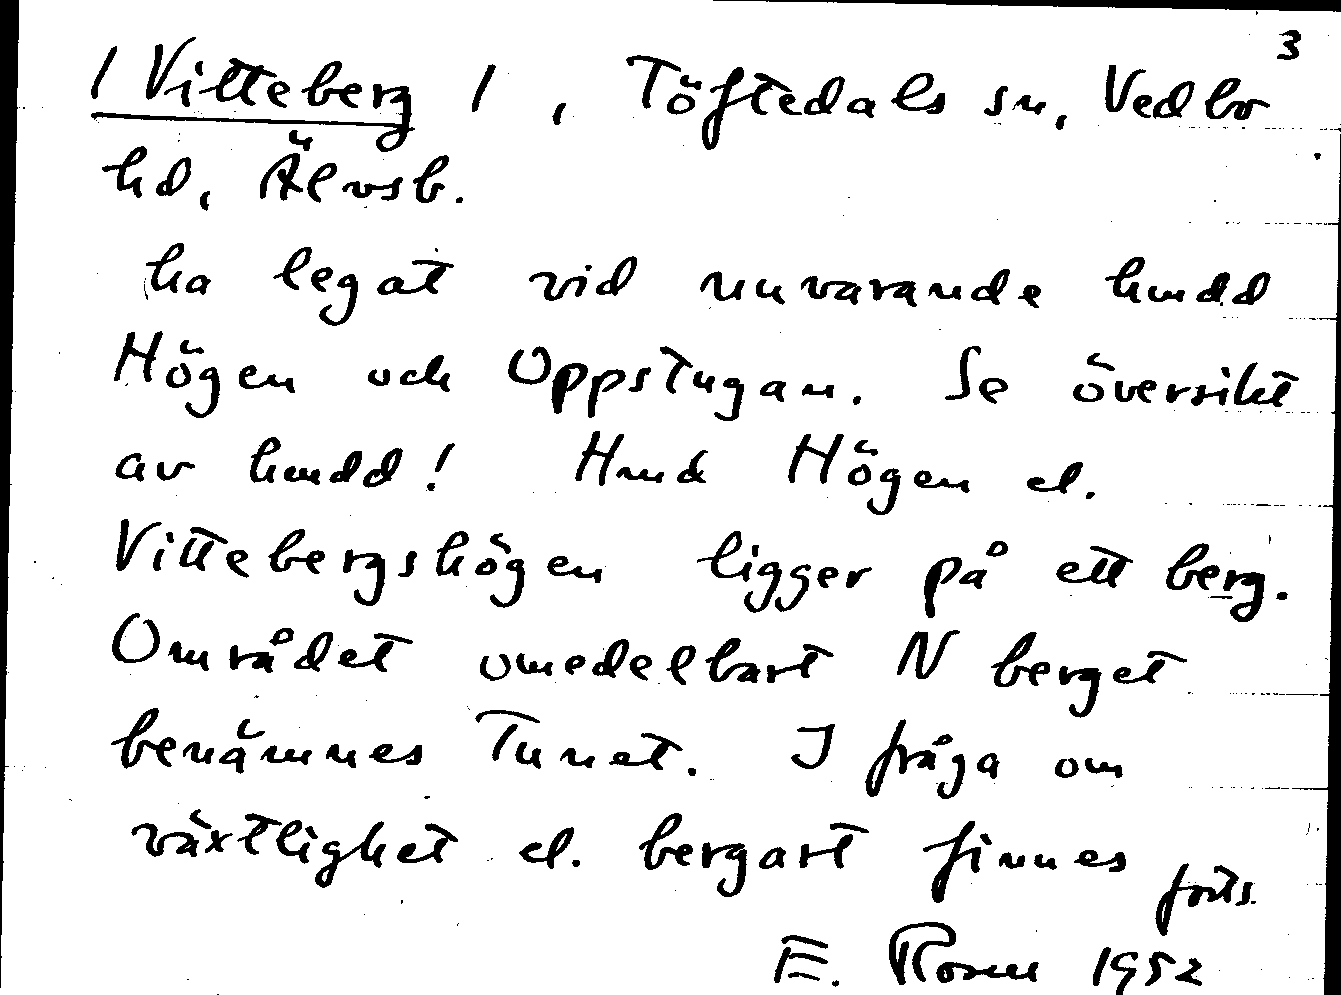 3
/ Vitteberg / , Töftedals sn, Vedbo
hd, Älvsb.
ha legat vid nuvarande hmdd
Högen och Uppstugan. Se översikt
av hmdd! Hmd Högen el.
Vittebergshögen ligger på ett berg.
Området omedelbart N berget
benämnes Tunet. I fråga om
växtlighet el. bergart finnes forts.
E. Rosen 1952